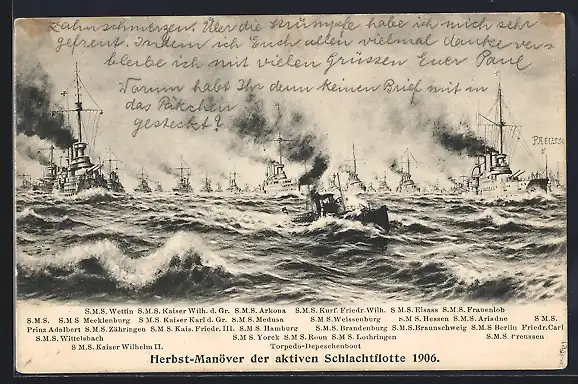 Zahnschmerzen. Über die Strümpfe habe ich mich sehr
gefreut. Indem ich Euch allen vielmal danke ver=
bleibe ich mit vielen Grüssen Euer Paul
Warum habt Ihr denn keinen Brief mit in
das Päkchen
gesteckt?
PREUSSEN
S.M.S. Wettin S.M.S. Kaiser Wilh. d. Gr. S.M.S. Arkona S.M.S. Kurf. Friedr. Wilh. S.M.S. Elsass S.M.S. Frauenlob
S.M.S. S.M.S Mecklenburg S.M.S. Kaiser Karl d. Gr. S.M.S. Medusa S.M.S. Weissenburg S.M.S. Hessen S.M.S. Ariadne S.M.S.
Prinz Adalbert S.M.S. Zähringen S.M.S. Kais. Friedr. III. S.M.S. Hamburg S.M.S. Brandenburg S.M.S. Braunschweig S.M.S Berlin Friedr. Carl
S.M.S. Wittelsbach S.M.S. Yorck S.M.S. Roon S.M.S. Lothringen S.M.S. Preussen
S.M.S. Kaiser Wilhelm II. Torpedo-Depeschenboot
Herbst-Manöver der aktiven Schlachtflotte 1906.